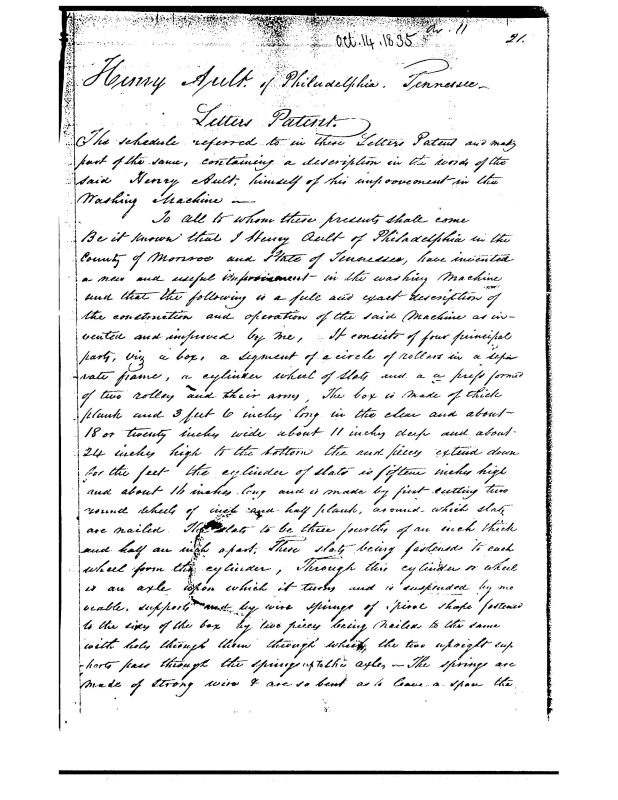 Oct. 14, 1835
21.
Henry Ault. of Philadelphia. Tennessee
Letters Patent.
The schedule referred to in these Letters Patent and making
part of the same, containing a description in the words of the
said Henry Ault, himself of his improvement in the
Washing Machine —
To all to whom these presents shall come
Be it known that I Henry Ault of Philadelphia in the
County of Monroe and State of Tennessee, have invented
a new and useful improvement in the washing Machine
and that the following is a full and exact description of
the construction and operation of the said Machine as in-
vented and improved by me, It consists of four principal
parts, viz a box, a segment of a circle of rollers in a sepa
rate frame, a cylinder wheel of slats and a a press formed
of two rollers and their arms, The box is made of thick
plank and 3 feet 6 inches long in the clear and about
18 or twenty inches wide about 11 inches deep and about
24 inches high to the bottom the end pieces extend down
for the feet the cylinder of slats is fifteen inches high
and about 16 inches long and is made by first cutting two
round wheels of inch and half plank, around which slats
are nailed. The slats to be three fourths of an inch thick
and half an inch apart, These slats being fastened to each
wheel form the cylinder, Through this cylinder or wheel
is an axle upon which it turns and is suspended by mo
veable, supports and by wire springs of spiral shape fastened
to the sides of the box by two pieces being nailed to the same
with holes through them through which, the two upright sup
ports pass through the springs to the axles — The springs are
made of strong wire & are so bent as to leave a space the